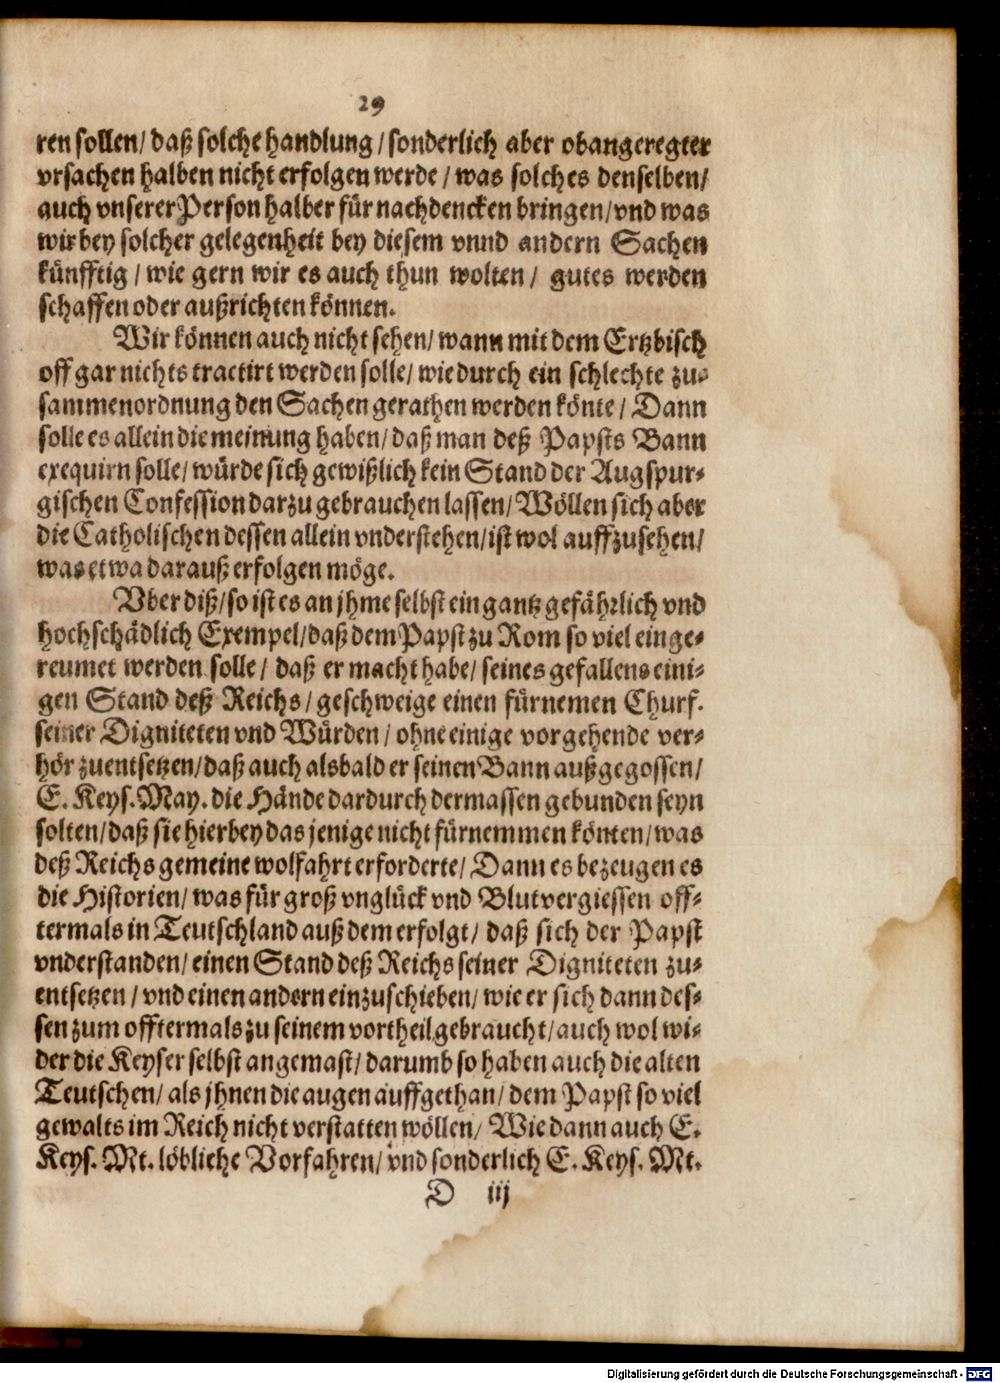 29
ren sollen/ daß solche handlung / sonderlich aber obangeregter
vrsachen halben nicht erfolgen werde / was solches denselben/
auch vnserer Person halber für nachdencken bringen/ vnd was
wir bey solcher gelegenheit bey diesem vnnd andern Sachen
künfftig / wie gern wir es auch thun wolten / gutes werden
schaffen oder außrichten können.
Wir können auch nicht sehen/ wann mit dem Ertzbisch
off gar nichts tractirt werden solle/ wie durch ein schlechte zu-
sammenordnung den Sachen gerathen werden könte / Dann
solle es allein die meinung haben/ daß man deß Papsts Bann
exequirn solle/ würde sich gewißlich kein Stand der Augspur-
gischen Confession darzu gebrauchen lassen/ Wöllen sich aber
die Catholischen dessen allein vnderstehen/ ist wol auffzusehen/
was etwa darauß erfolgen möge.
Vber diß/ so ist es an jhme selbst ein gantz gefährlich vnd
hochschädlich Exempel/ daß dem Papst zu Rom so viel einge-
reumet werden solle / daß er macht habe/ seines gefallens eini-
gen Stand deß Reichs / geschweige einen fürnemen Churf.
seiner Digniteten vnd Würden / ohne einige vorgehende ver-
hör zuentsetzen/ daß auch alsbald er seinen Bann außgegossen/
E. Keys. May. die Hände dardurch dermassen gebunden seyn
solten/ daß sie hierbey das jenige nicht fürnemmen könten/ was
deß Reichs gemeine wolfahrt erforderte/ Dann es bezeugen es
die Historien/ was für groß vnglück vnd Blutvergiessen off-
termals in Teutschland auß dem erfolgt/ daß sich der Papst
vnderstanden/ einen Stand deß Reichs seiner Digniteten zu-
entsetzen / vnd einen andern einzuschieben/ wie er sich dann des-
sen zum offtermals zu seinem vortheil gebraucht/ auch wol wi-
der die Keyser selbst angemast/ darumb so haben auch die alten
Teutschen/ als jhnen die augen auffgethan/ dem Papst so viel
gewalts im Reich nicht verstatten wöllen/ Wie dann auch E.
Keys. Mt. löbliche Vorfahren/ vnd sonderlich E. Keys. Mt.
D iij
Digitalisierung gefördert durch die Deutsche Forschungsgemeinschaft - DFG